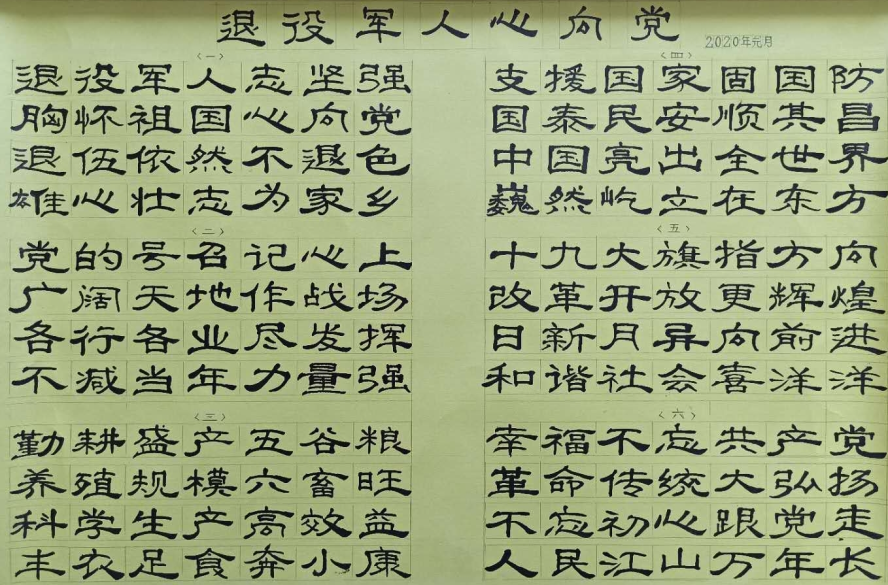 退役军人心向党
2020年元月
(一)
退役军人志坚强
胸怀祖国心向党
退伍依然不退色
雄心壮志为家乡
(二)
党的号召记心上
广阔天地作战场
各行各业尽发挥
不减当年力量强
(三)
勤耕盛产五谷粮
养殖规模六畜旺
科学生产高效益
丰衣足食奔小康
(四)
支援国家固国防
国泰民安顺其昌
中国亮出全世界
巍然屹立在东方
(五)
十九大旗指方向
改革开放更辉煌
日新月异向前进
和谐社会喜洋洋
(六)
幸福不忘共产党
革命传统大弘扬
不忘初心跟党走
人民江山万年长